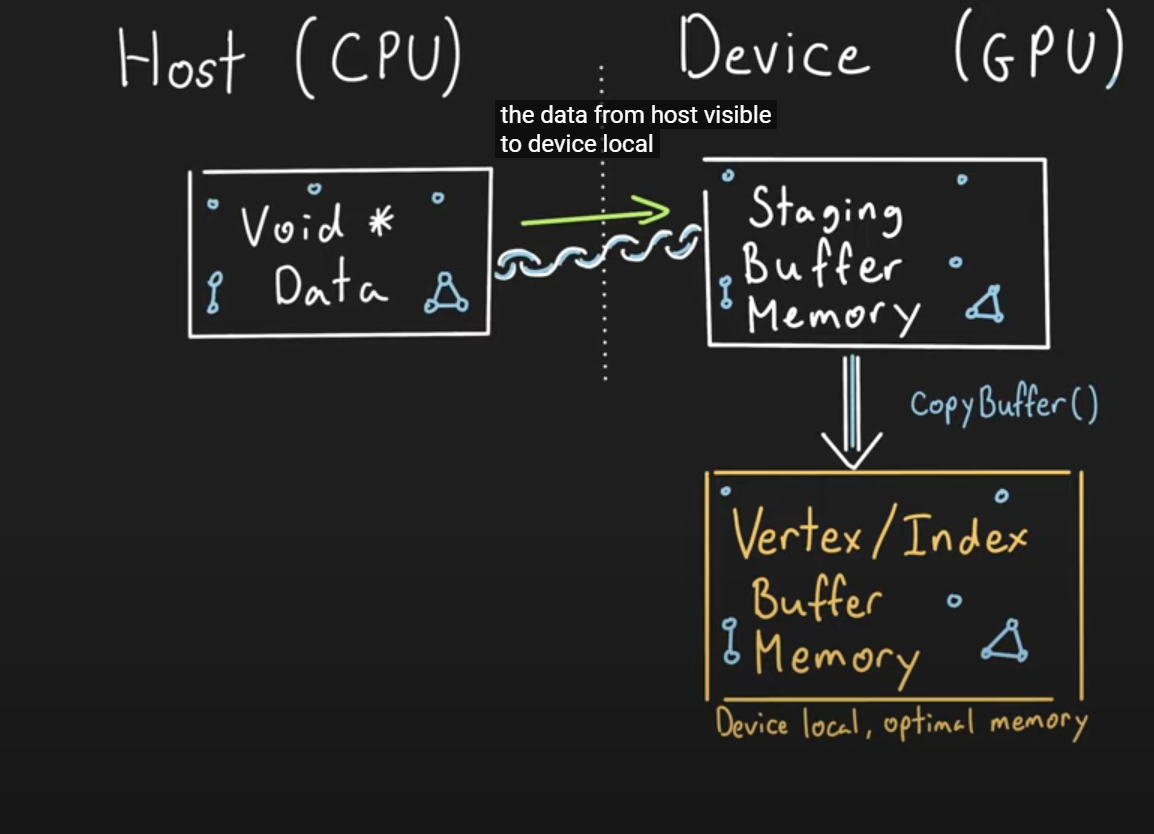 Host (CPU)
Device (GPU)
the data from host visible
to device local
Void *
Data
Staging
Buffer
Memory
CopyBuffer()
Vertex/Index
Buffer
Memory
Device local, optimal memory